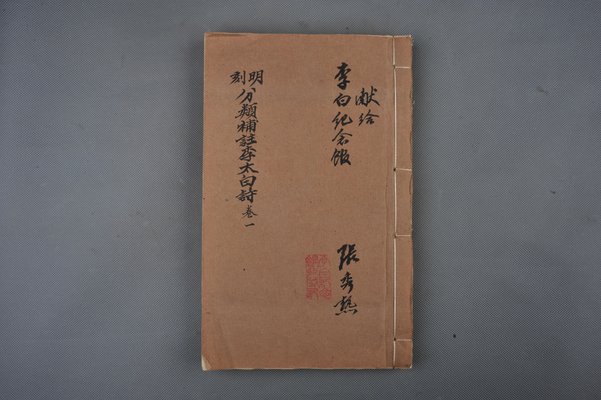 献给
李白纪念馆
张秀熟
明刻
分類補註李太白詩 卷一